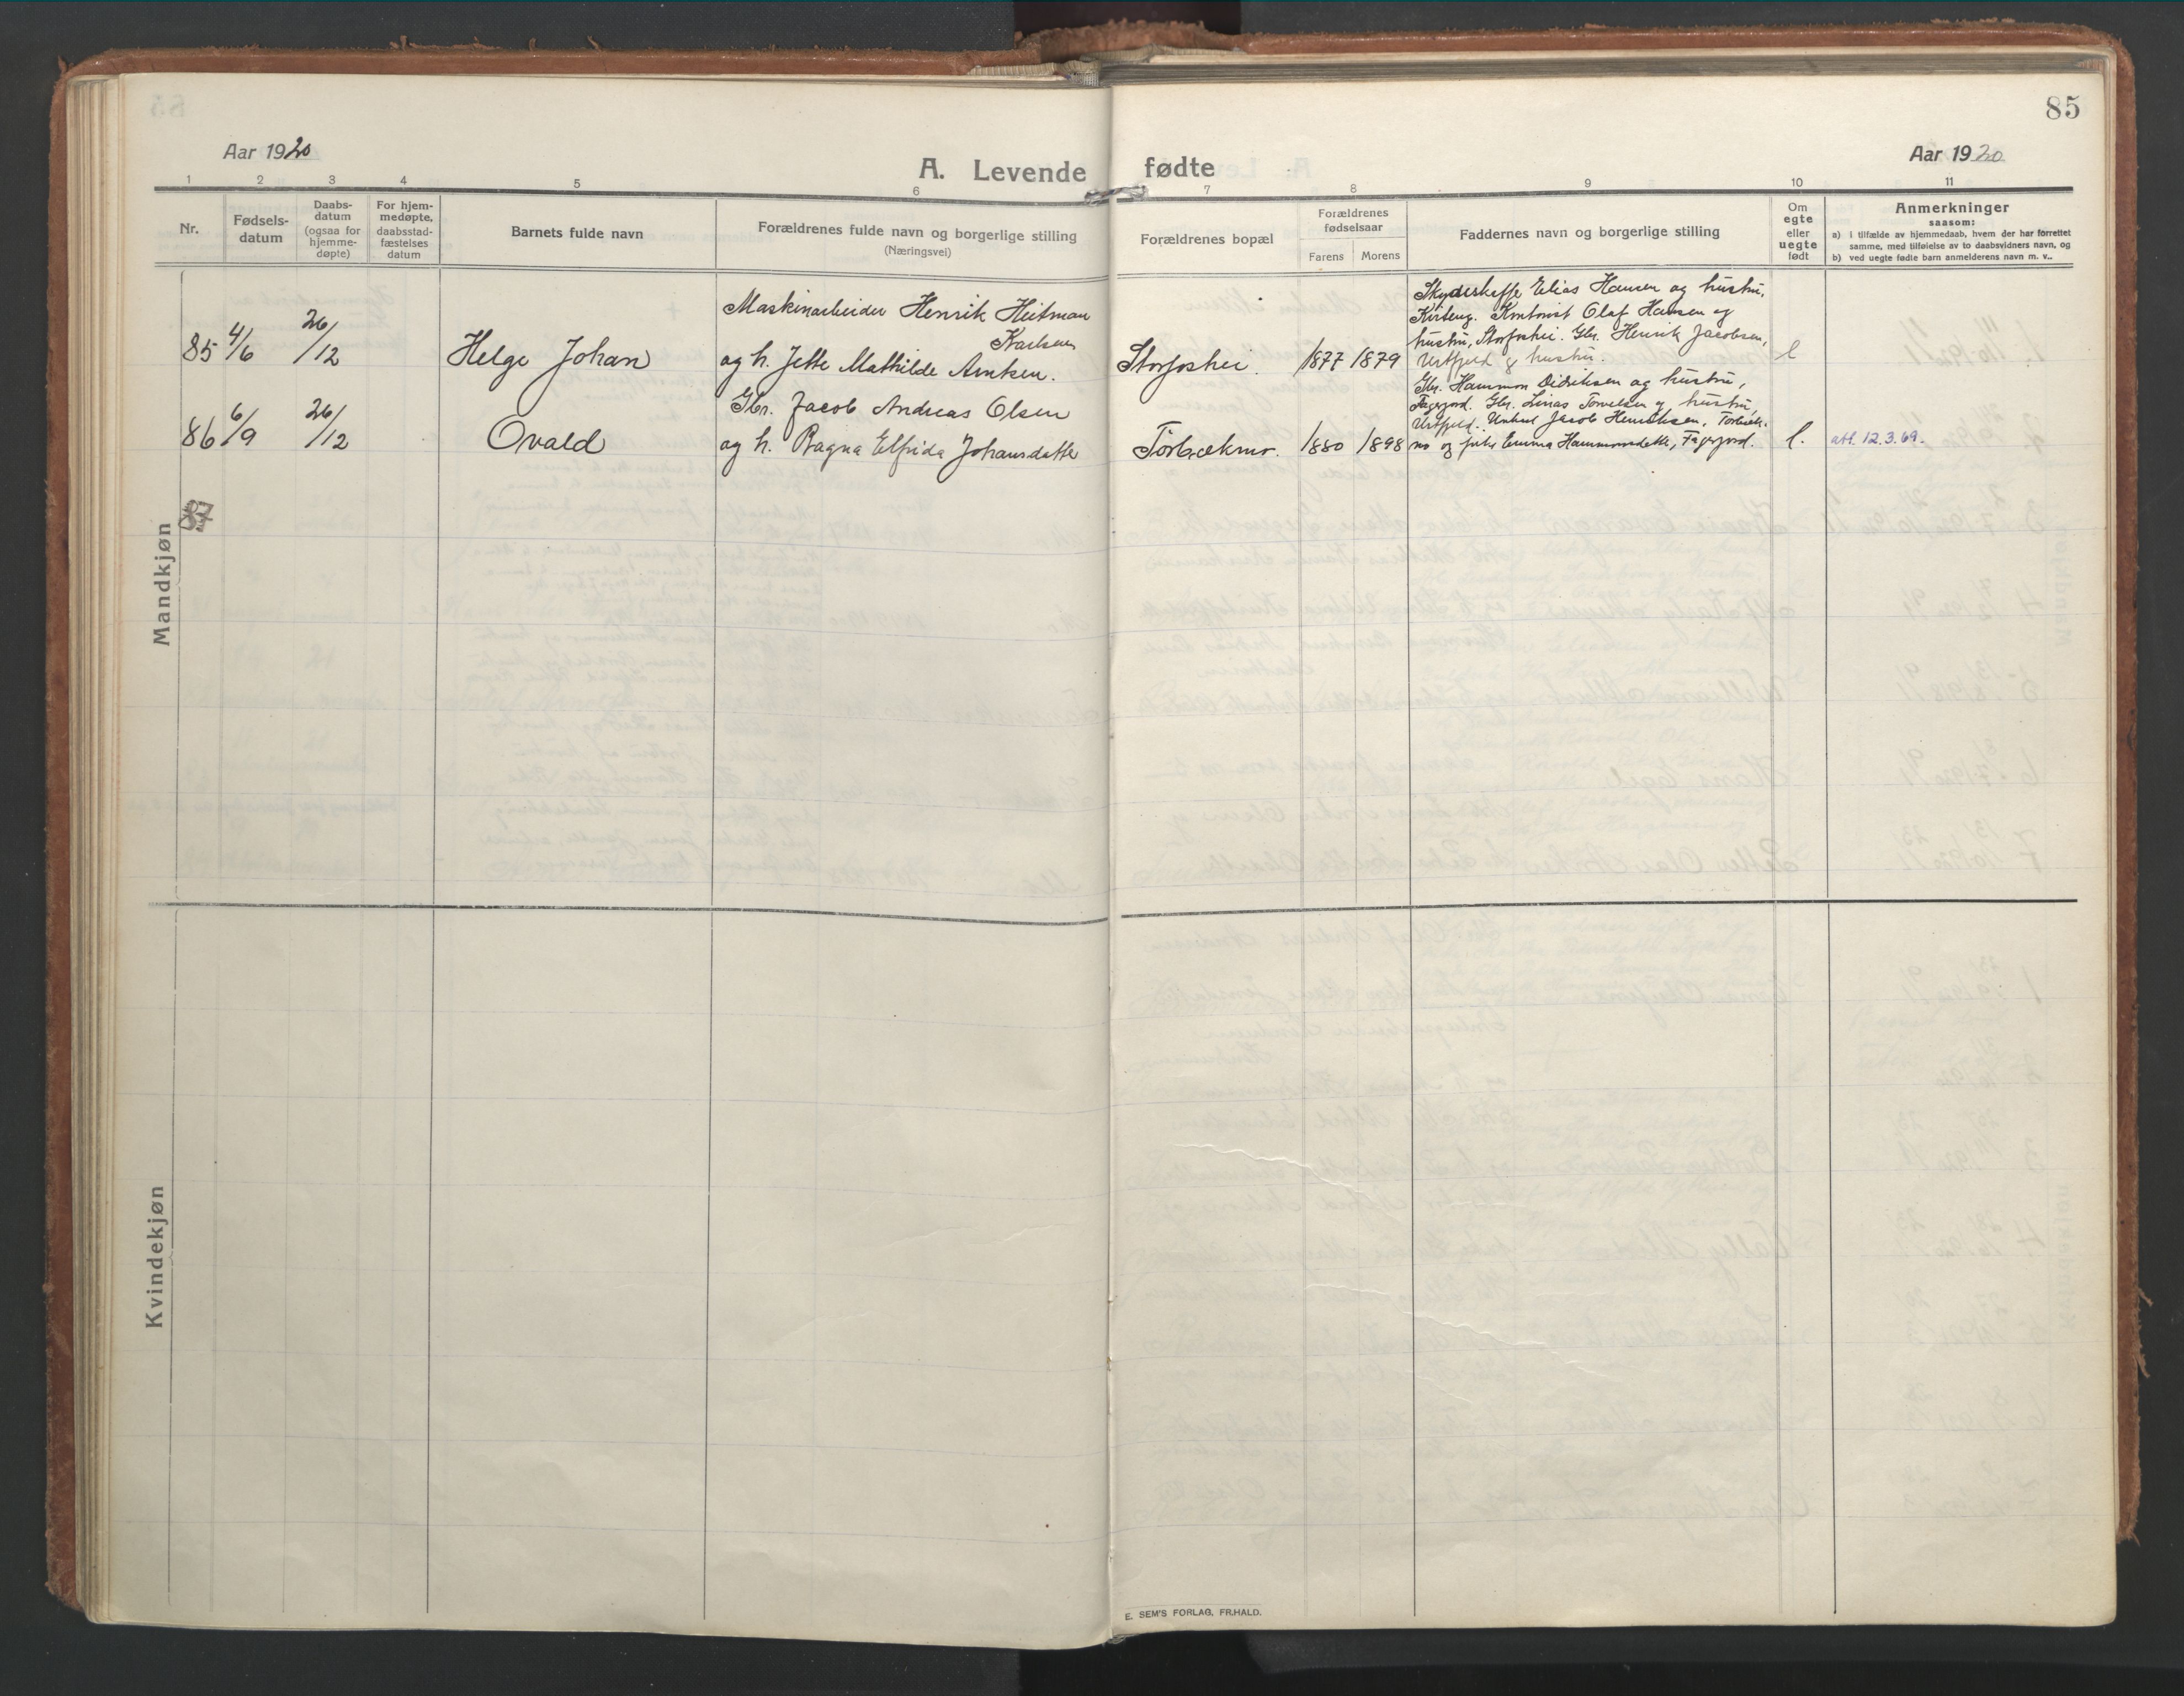 85
Aar 1920
A. Levende fødte
Aar 1920
1 2 3 4 5 6 7 8 9 10 11
Nr.
Fødsels-
datum
Daabs-
datum
(ogsaa for
hjemme-
døpte)
For hjem-
medøpte,
daabsstad-
fæstelses
datum
Barnets fulde navn
Forældrenes fulde navn og borgerlige stilling
(Næringsvei)
Forældrenes bopæl
Forældrenes
fødselsaar
Farens Morens
Faddernes navn og borgerlige stilling
Om
egte
eller
uegte
født
Anmerkninger
saasom:
a) i tilfælde av hjemmedaab, hvem der har forrettet
samme, med tilføielse av to daabsvidners navn, og
b) ved uegte fødte barn anmelderens navn m. v..
Mandkjøn
85 4/6 26/12 Helge Johan
Maskinarbeider Henrik Heitman
Karlsen
og h. Jette Mathilde Arntsen.
Storforshei. 1877 1879
Skydsskaffer Elias Hansen og hustru,
Kontorist Olaf Hansen og
hustru, Storforshei. Gbr. Henrik Jacobsen,
Urtfjeld og hustru.
86 6/9 26/12 Ovald
Gbr. Jacob Andreas Olsen
og h. Ragna Elfrida Johansdatter
Tørbækmo. 1880 1898
Gbr. Hammon Didriksen og hustru,
Fagerjord. Gbr. Linas Torvelsen og hustru,
Urtfjeld. Unkarl Jacob Henriksen, Tørbæk-
mo og pike Emma Hammonsdatter, Fagerjord.
att. 12.3.69.
87
Kvindekjøn
E. SEM'S FORLAG, FR.HALD.